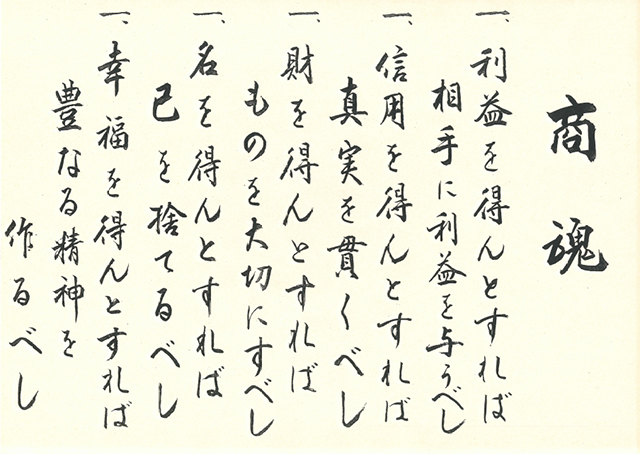 商魂
一、利益を得んとすれば
相手に利益を与うべし
一、信用を得んとすれば
真実を貫くべし
一、財を得んとすれば
ものを大切にすべし
一、名を得んとすれば
己を捨てるべし
一、幸福を得んとすれば
豊なる精神を
作るべし